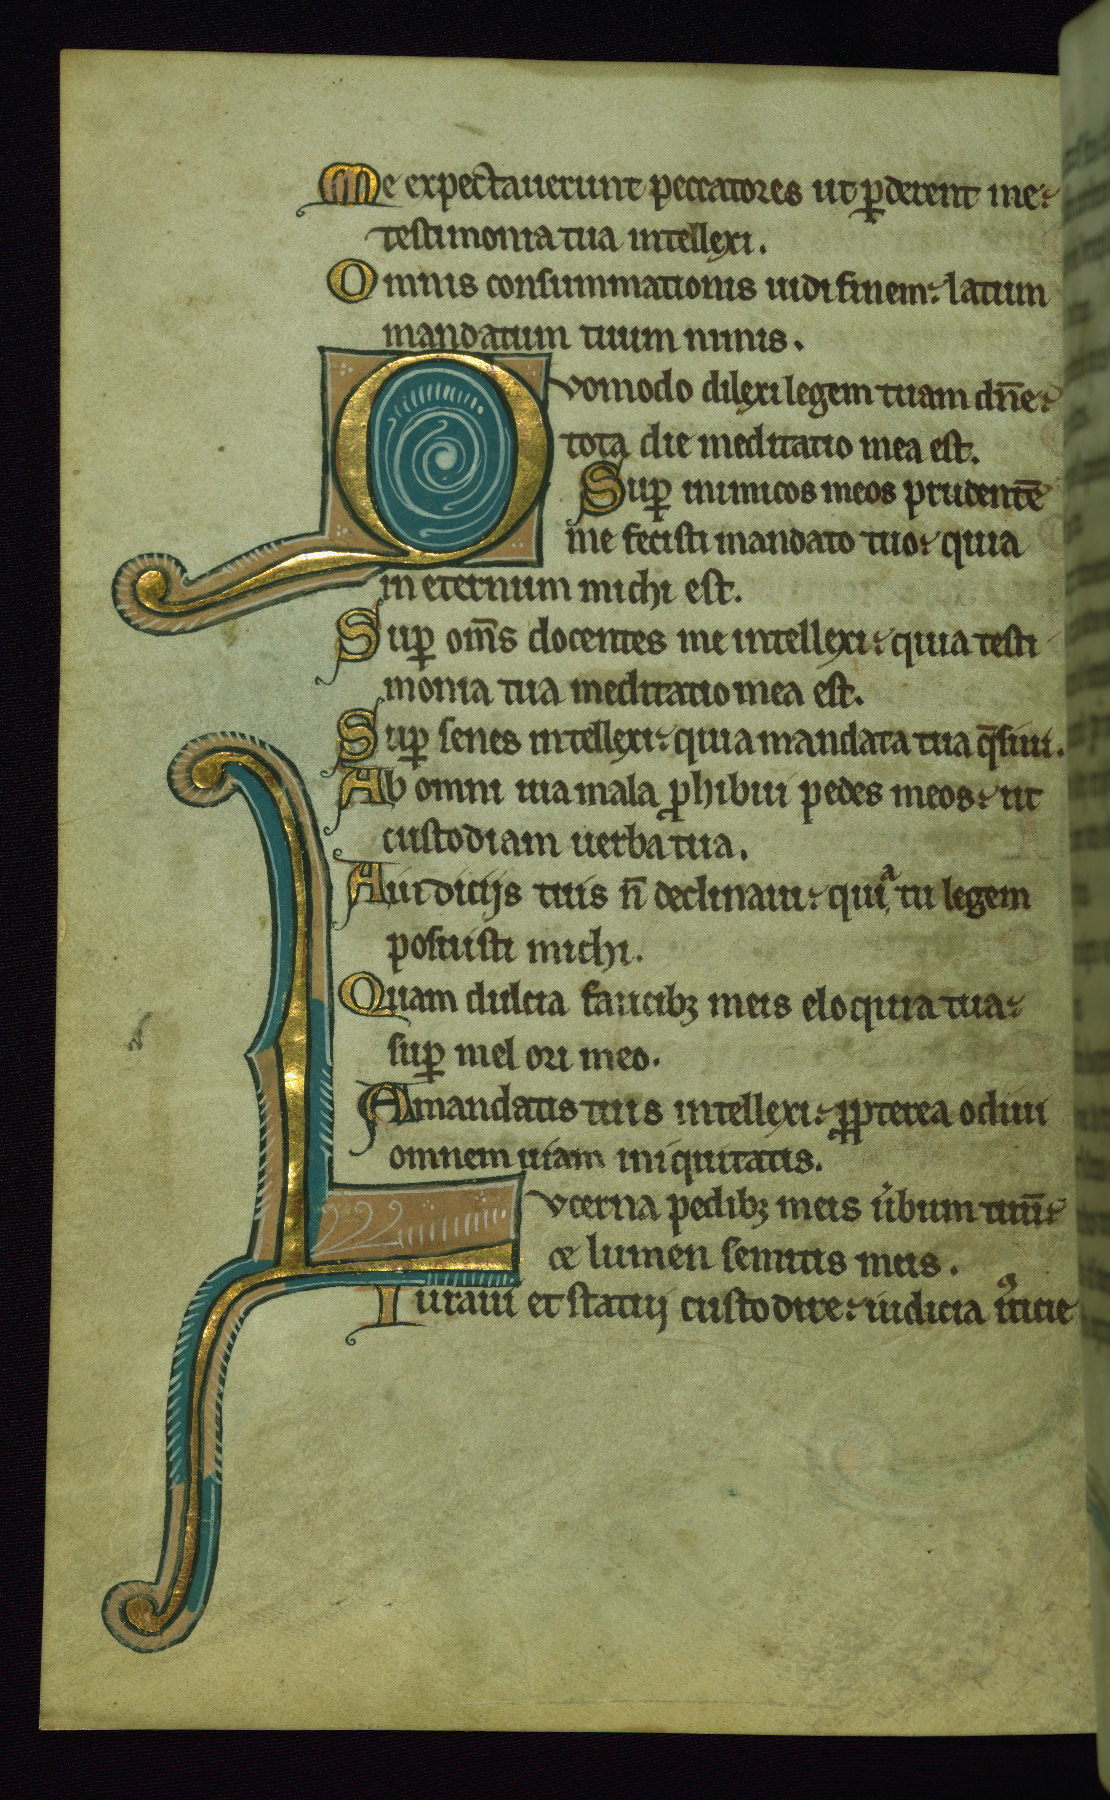 Me expectauerunt peccatores ut ꝑderent me:
testimonia tua intellexi.
Omnis consummationis uidi finem: latum
mandatum tuum nimis.
Quomodo dilexi legem tuam dn̄e:
tota die meditatio mea est.
Suꝑ inimicos meos prudentē
me fecisti mandato tuo: quia
in eternum michi est.
Suꝑ om̄s docentes me intellexi: quia testi
monia tua meditatio mea est.
Suꝑ senes intellexi: quia mandata tua q̄siui.
Ab omni uia mala ꝓhibui pedes meos: ut
custodiam uerba tua.
A iudicijs tuis n̄ declinaui: quiᵃ tu legem
posuisti michi.
Quam dulcia faucibꝫ meis eloquia tua:
suꝑ mel ori meo.
A mandatis tuis intellexi: ꝓpterea odiui
omnem uiam iniquitatis.
Lucerna pedibꝫ meis u̓bum tuū:
et lumen semitis meis.
Iuraui et statuj custodire: iudicia